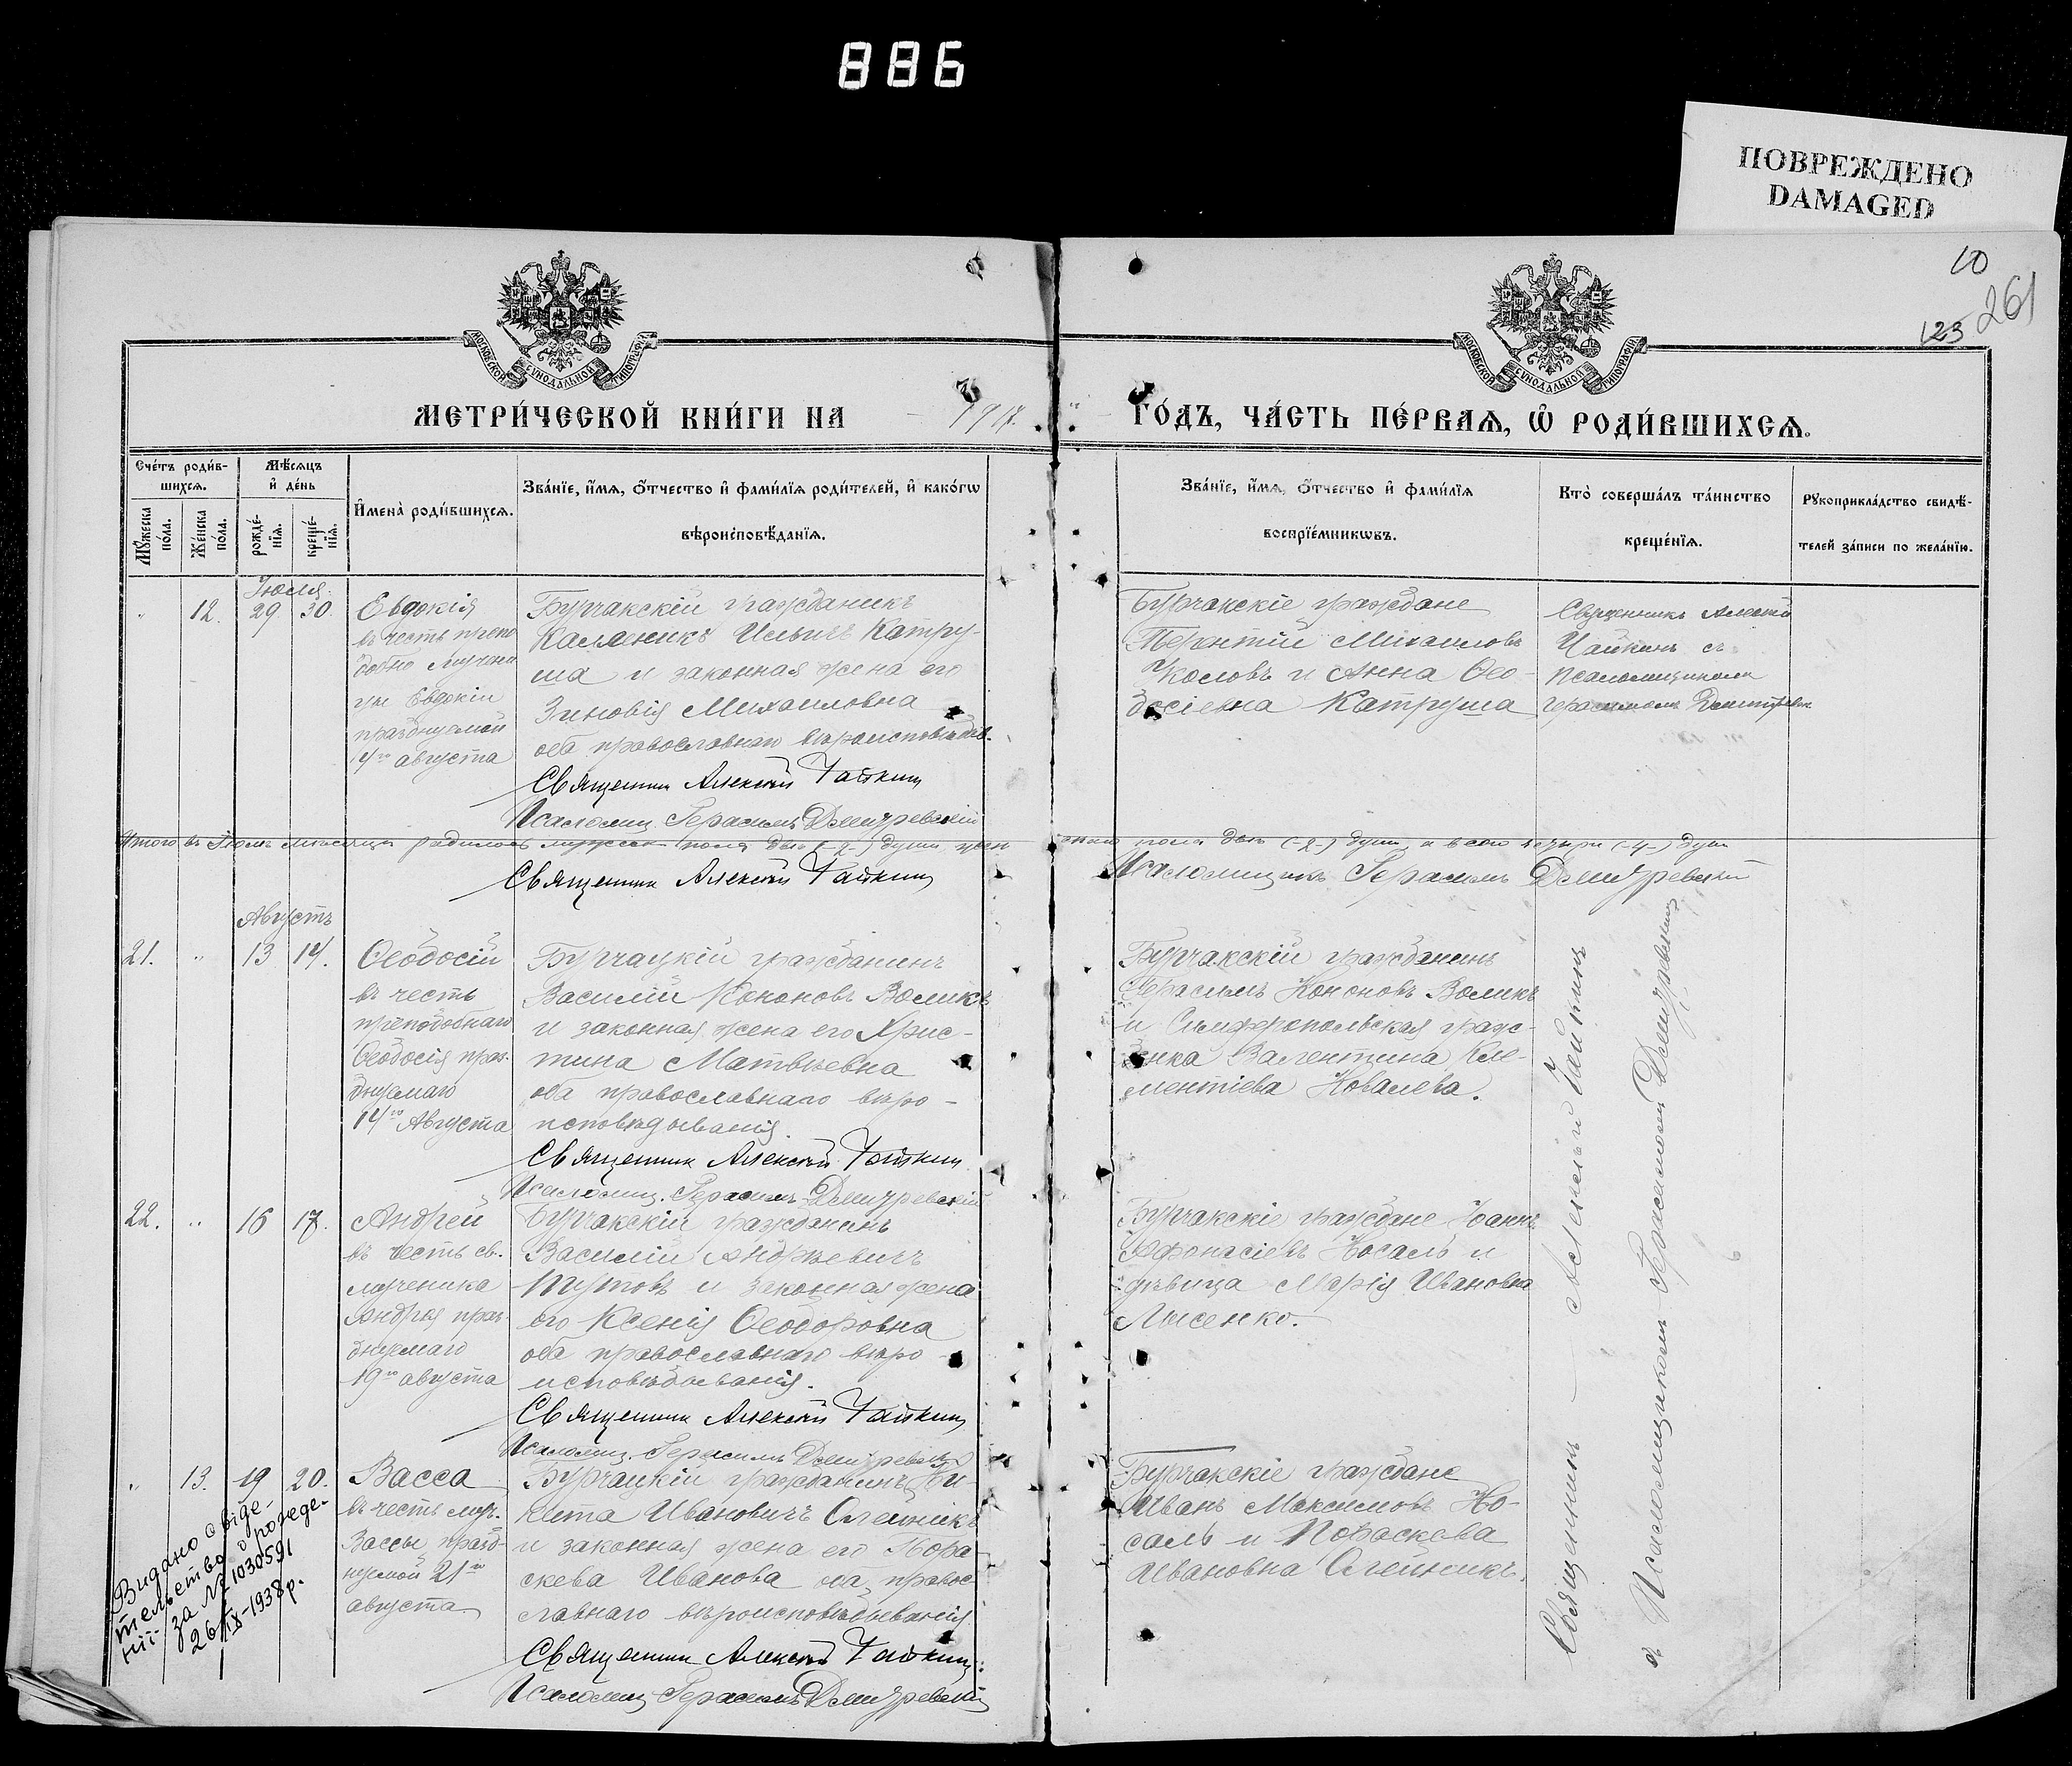 886
ПОВРЕЖДЕНО
DAMAGED
10
261
123
МОСКОВСКОЙ СУНОДАЛЬНОЙ ТИПОГРАФІИ
МОСКОВСКОЙ СУНОДАЛЬНОЙ ТИПОГРАФІИ
МЕТРИ́ЧЕСКОЙ КНИ́ГИ НА 1917. ГО́ДЪ, ЧА́СТЬ ПЕ́РВАѦ, Ѡ҆ РОДИ́ВШИХСѦ.
Сче́тъ роди́в-
шихсѧ.
Мꙋ́жеска по́ла.
Же́нска по́ла.
Мѣ́сѧцъ
и҆ де́нь
рожде́-
нїѧ.
креще́-
нїѧ.
И҆мена̀ роди́вшихсѧ.
Зва́нїе, и҆́мѧ, о҆́тчество и҆ фами́лїѧ роди́телей, и҆ како́гѡ
вѣроисповѣ́данїѧ.
Зва́нїе, и҆́мѧ, о҆́тчество и҆ фами́лїѧ
воспрїе́мникѡвъ.
Кто̀ соверша́лъ та́инство
креще́нїѧ.
Рꙋкоприкла́дство свидѣ́-
телей за́писи по жела́нїю.
Іюля.
" 12. 29 30
Евдокія
въ честь препо
добно мучени
цы Евдокіи
празднуемой
4го августа
Бурчакскій гражданинъ
Каленикъ Ильичъ Катру-
ша и законная жена его
Зиновія Михаиловна
оба православнаго вѣроисповѣд.
Священник Алексій Чайкин
Псаломщ. Герасимъ Дмитревскій
Бурчакскіе граждане
Терентій Михаиловъ
Козловъ и Анна Ѳео-
досіевна Катруша
Священникъ Алексій
Чайкинъ съ
псаломщикомъ
Герасимомъ Дмитревск
Итого въ Іюлѣ мѣсяцѣ родилось мужеск пола двѣ (-2-) души жен
скаго пола двѣ (-2-) души, а всего четыре (-4-) душ
Священник Алексій Чайкин
Псаломщикъ Герасимъ Дмитревскій
Августъ
21. " 13 14.
Ѳеодосій
въ честь
преподобнаго
Ѳеодосія праз-
днуемаго
14го Августа
Бурчацкій гражданинъ
Василій Кононовъ Воликъ
и законная жена его Хрис-
тина Матвѣевна
оба православнаго вѣро-
исповѣдыванія.
Священник Алексій Чайкин
Псаломщ. Герасимъ Дмитревскій
Бурчакскій гражданинъ
Герасимъ Кононовъ Воликъ
и Симферопольская граж-
данка Валентина Кле-
ментіева Ковалева.
22. " 16 17.
Андрей
въ честь св.
мученика
Андрея праз-
днуемаго
19го августа
Бурчакскій гражданинъ
Василій Андреевичъ
Шутовъ и законная жена
его Ксенія Ѳеодоровна
оба православнаго вѣро-
исповѣдованія.
Священник Алексій Чайкин
Псаломщ. Герасимъ Дмитревскій
Бурчакскіе граждане Іоаннъ
Афонасіевъ Носаль и
дѣвица Марія Ивановна
Лысенко.
" 13. 19 20.
Васса
въ честь муч.
Вассы празд-
нуемой 21го
августа.
Бурчацкій гражданинъ Ни
кита Ивановичъ Олейникъ
и законная жена его Пора
скева Иванова оба правос
лавнаго вѣроисповѣдыванія
Священник Алексій Чайкин
Псаломщ. Герасимъ Дмитревскій
Бурчакскіе граждане
Иванъ Максимовъ Но-
саль и Пораскева
Ивановна Олейникъ.
Видано свіде-
тельство о рожде-
нії за № 1030591
26/IX-1938 р.
Священникъ — Алексій Чайкинъ
съ Псаломщикомъ Герасимомъ Дмитревскимъ